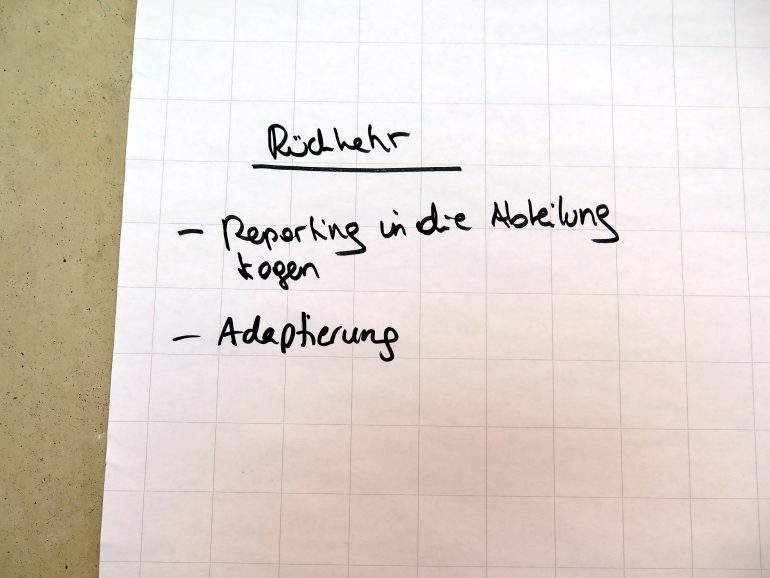 Rückkehr
- Reporting in die Abteilung
tragen
- Adaptierung